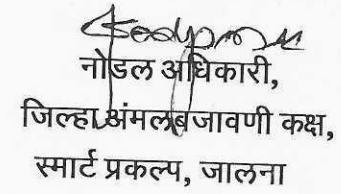 नोडल अधिकारी,
जिल्हा अंमलबजावणी कक्ष,
स्मार्ट प्रकल्प, जालना